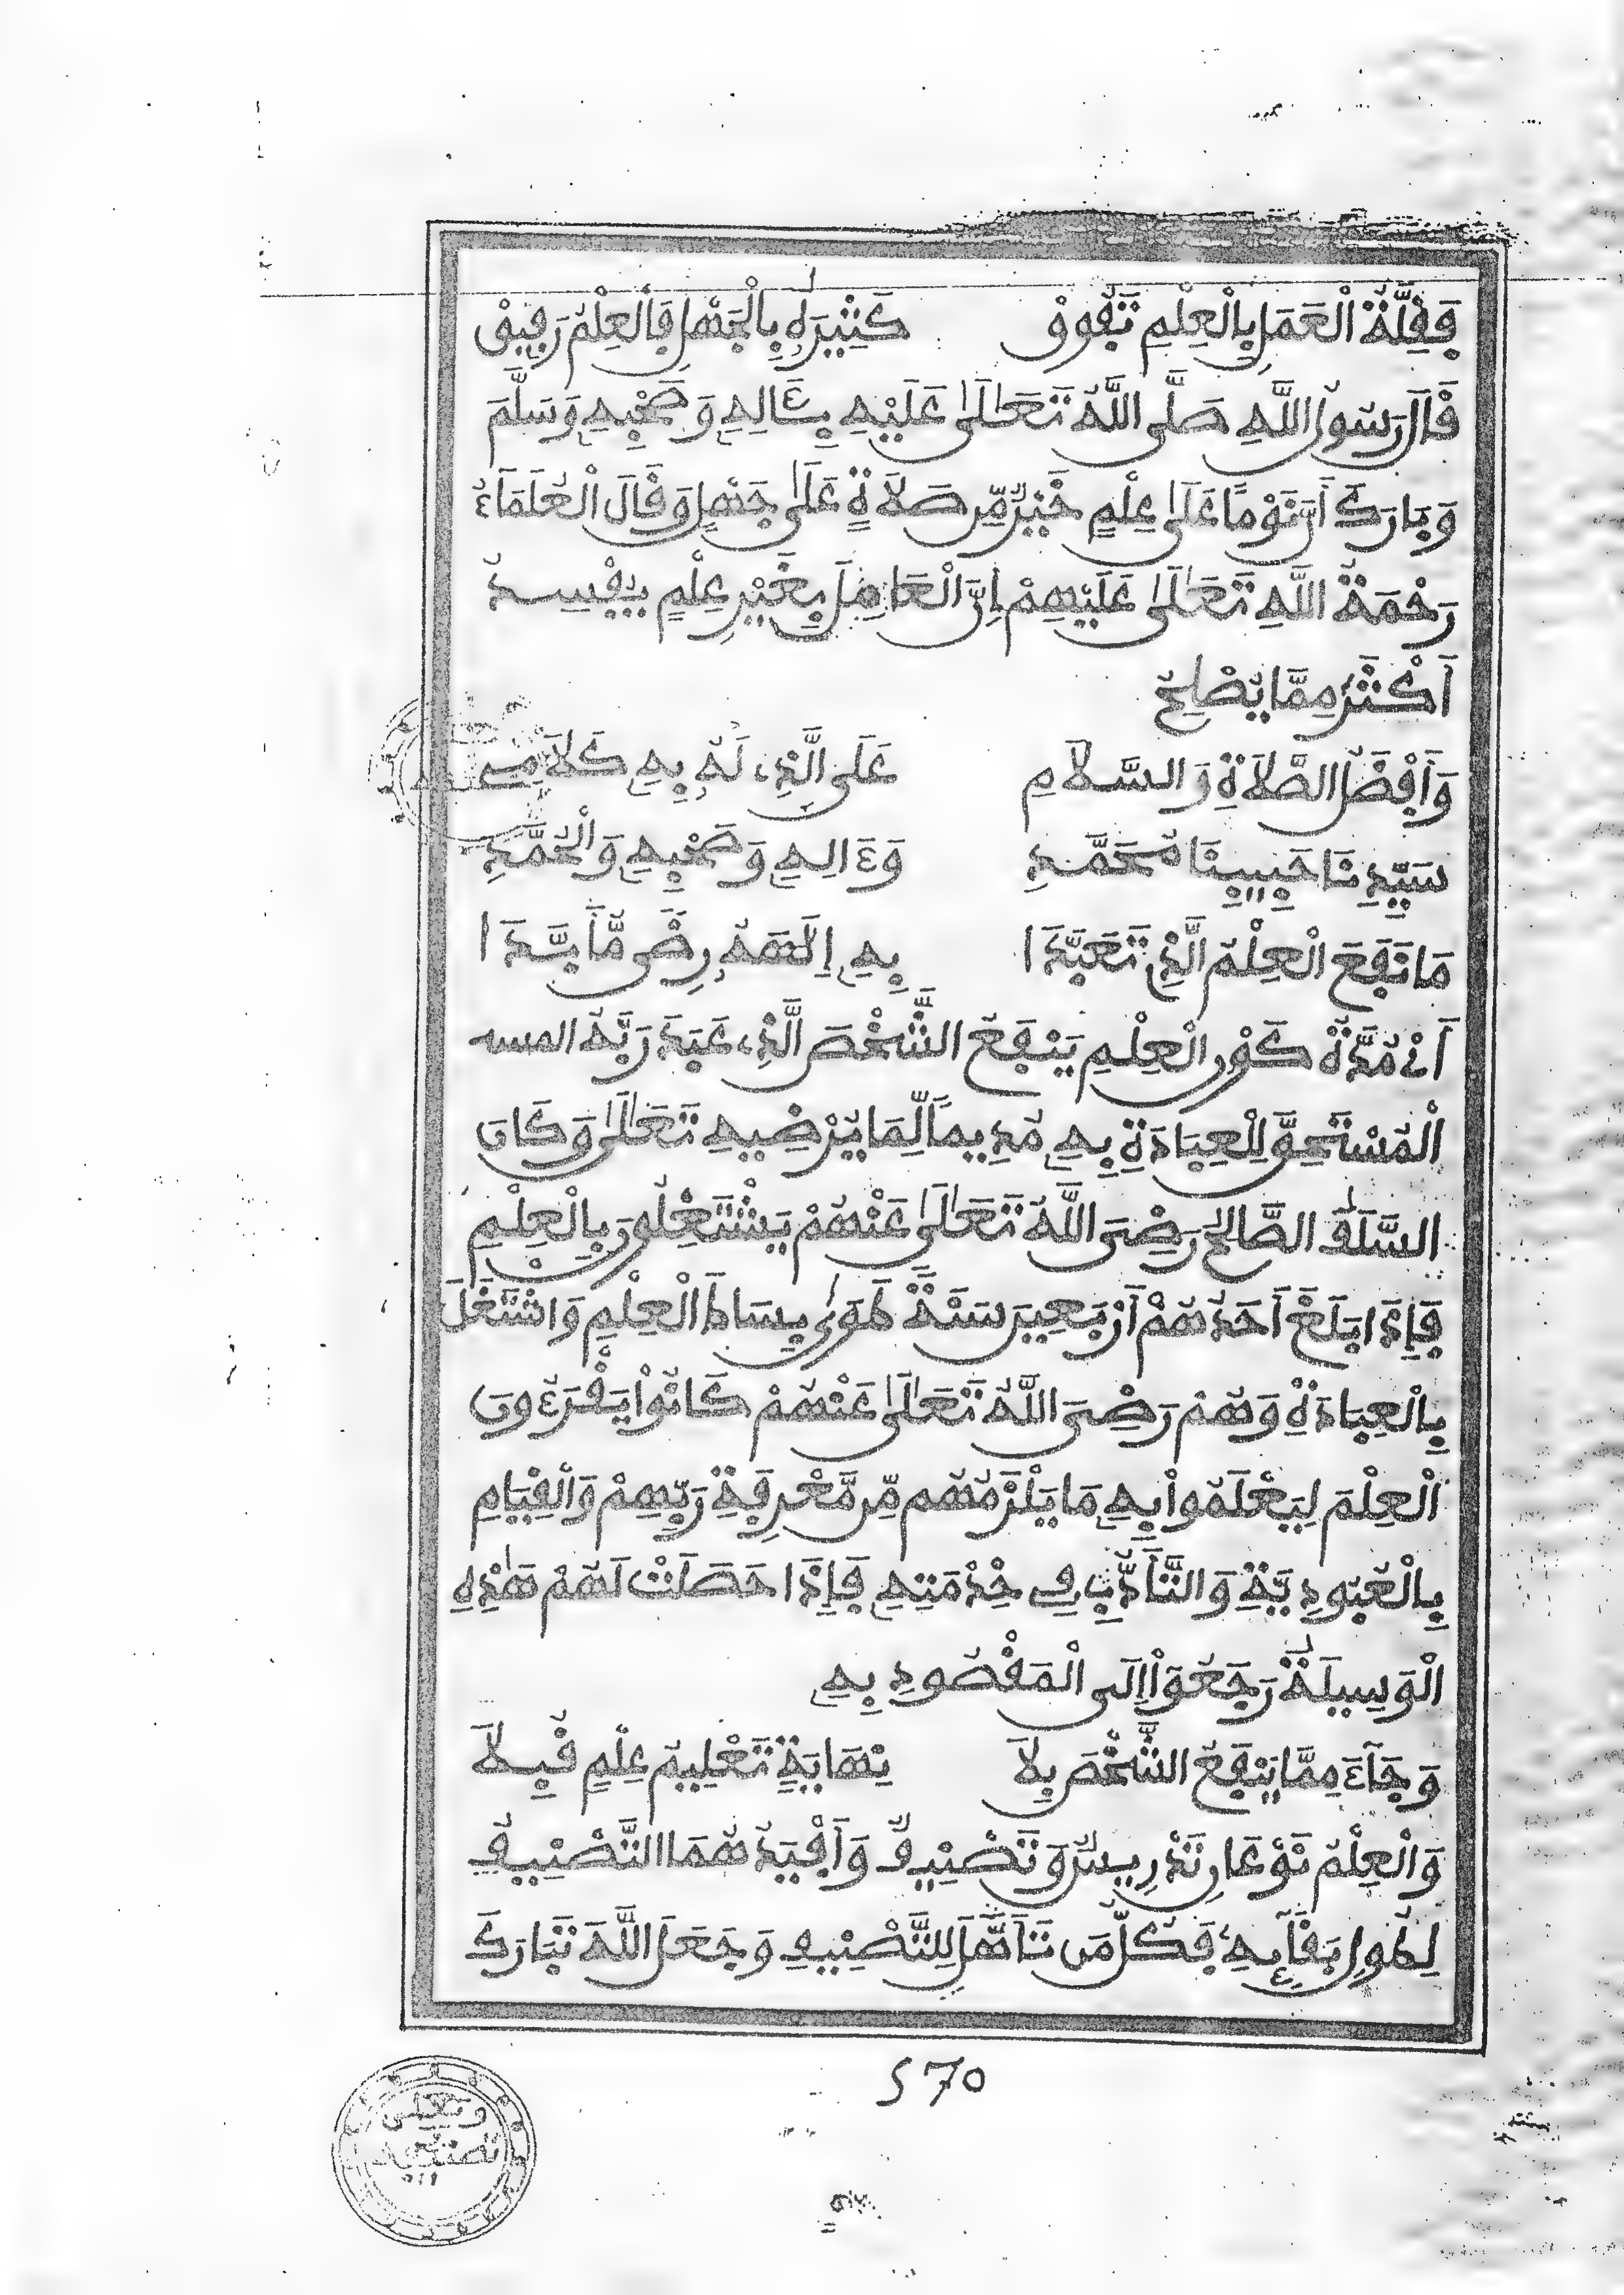 فَقِلَّةُ الْعَمَلِ بِالْعِلْمِ تَفُوقْ كَثِيرَهُ بِالْجَهْلِ فَالْعِلْمُ رَفِيقْ
قَالَ رَسُولُ اللَّهِ صَلَّى اللَّهُ تَعَالَىٰ عَلَيْهِ بِـَٔالِهِ وَصَحْبِهِ وَسَلَّمَ
وَبَارَكَ أَنَّ نَوْمًا عَلَىٰ عِلْمٍ خَيْرٌ مِّن صَلَاةٍ عَلَىٰ جَهْلٍ وَقَالَ الْعُلَمَاءُ
رَحْمَةُ اللَّهِ تَعَالَىٰ عَلَيْهِمْ إِنَّ الْعَامِلَ بِغَيْرِ عِلْمٍ يُفْسِدُ
أَكْثَرَ مِمَّا يُصْلِحُ
وَأَفْضَلُ الصَّلَاةِ وَالسَّلَامِ عَلَى الَّذِي لَهُ بِهِ كَلَامِ
سَيِّدِنَا حَبِيبِنَا مُحَمَّدِ وَءَالِهِ وَصَحْبِهِ وَالْحُمَّدِ
مَا نَفَعَ الْعِلْمُ الَّذِي تَعَبَّدَا بِهِ إِلَهَهُ رِضًى مَّا بَدَّدَا
أَيْ مُدَّةَ كَوْنِ الْعِلْمِ يَنْفَعُ الشَّخْصَ الَّذِي عَبَدَ رَبَّهُ المسـ
الْمُسْتَحِقَّ لِلْعِبَادَةِ بِهِ مُدِيمًا لِّمَا يُرْضِيهِ تَعَالَىٰ وَكَانَ
السَّلَفُ الصَّالِحُ رَضِيَ اللَّهُ تَعَالَىٰ عَنْهُمْ يَشْتَغِلُونَ بِالْعِلْمِ
فَإِذَا بَلَغَ أَحَدُهُمْ أَرْبَعِينَ سَنَةً طَوَىٰ بِسَاطَ الْعِلْمِ وَاشْتَغَلَ
بِالْعِبَادَةِ وَهُمْ رَضِيَ اللَّهُ تَعَالَىٰ عَنْهُمْ كَانُواْ يَقْرَءُونَ
الْعِلْمَ لِيَعْلَمُواْ بِهِ مَا يَلْزَمُهُم مِّن مَّعْرِفَةِ رَبِّهِمْ وَالْقِيَامِ
بِالْعُبُودِيَّةِ وَالتَّأَدُّبِ فِي خِدْمَتِهِ فَإِذَا حَصَلَتْ لَهُمْ هَذِهِ
الْوَسِيلَةُ رَجَعُوٓاْ إِلَى الْمَقْصُودِ بِهِ
وَجَآءَ مِمَّا يَنْفَعُ الشَّخْصَ بِلَا نِهَايَةٍ تَعْلِيمُ عِلْمٍ قُبِلَا
وَالْعِلْمُ نَوْعَانِ تَدْرِيسٌ وَتَصْنِيفٌ وَأَفْيَدُهُمَا التَّصْنِيفُ
لِطُولِ بَقَآئِهِ فَكُلُّ مَن تَأَهَّلَ لِلتَّصْنِيفِ وَجَعَلَ اللَّهُ تَبَارَكَ
570